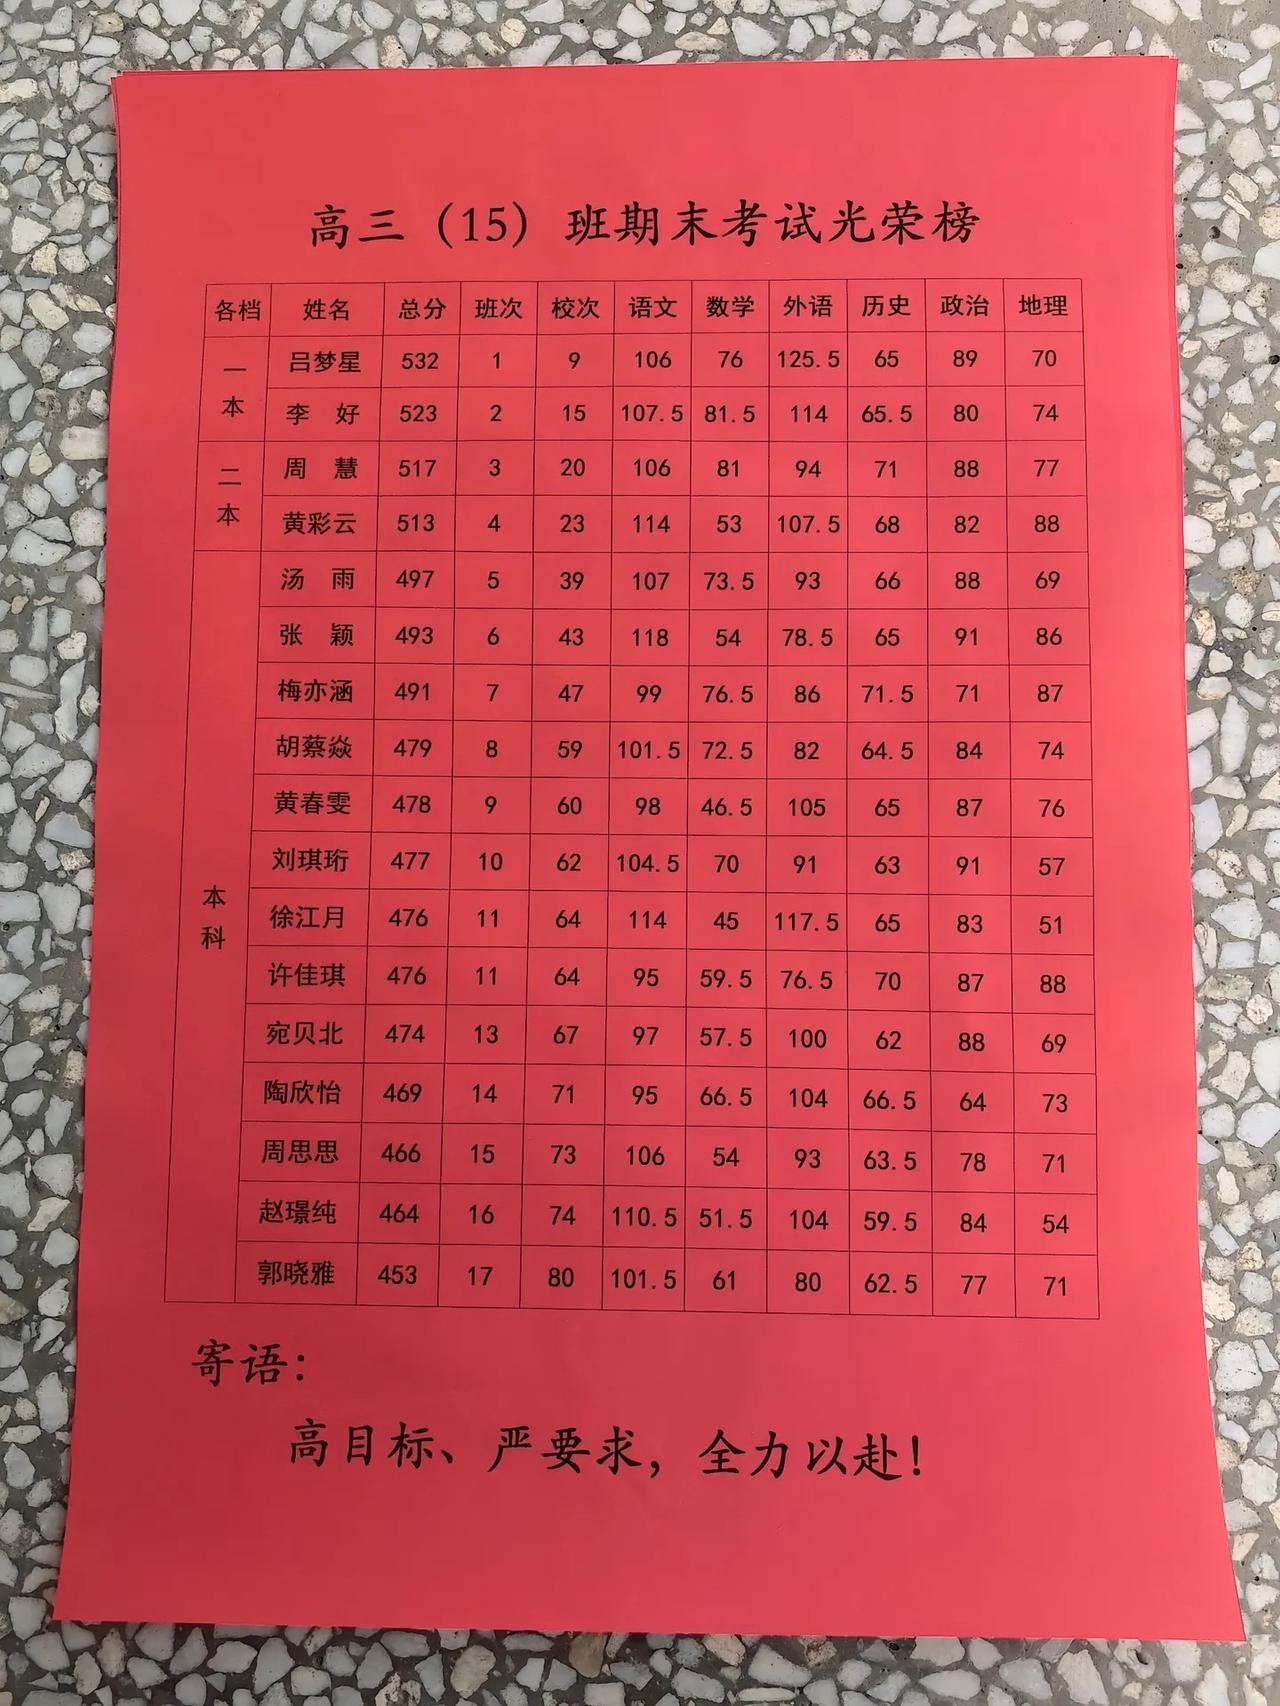 高三（15）班期末考试光荣榜
各档 姓名 总分 班次 校次 语文 数学 外语 历史 政治 地理
一本 吕梦星 532 1 9 106 76 125.5 65 89 70
李 好 523 2 15 107.5 81.5 114 65.5 80 74
二本 周 慧 517 3 20 106 81 94 71 88 77
黄彩云 513 4 23 114 53 107.5 68 82 88
本科 汤 雨 497 5 39 107 73.5 93 66 88 69
张 颖 493 6 43 118 54 78.5 65 91 86
梅亦涵 491 7 47 99 76.5 86 71.5 71 87
胡蔡焱 479 8 59 101.5 72.5 82 64.5 84 74
黄春雯 478 9 60 98 46.5 105 65 87 76
刘琪珩 477 10 62 104.5 70 91 63 91 57
徐江月 476 11 64 114 45 117.5 65 83 51
许佳琪 476 11 64 95 59.5 76.5 70 87 88
宛贝北 474 13 67 97 57.5 100 62 88 69
陶欣怡 469 14 71 95 66.5 104 66.5 64 73
周思思 466 15 73 106 54 93 63.5 78 71
赵璟纯 464 16 74 110.5 51.5 104 59.5 84 54
郭晓雅 453 17 80 101.5 61 80 62.5 77 71
寄语：
高目标、严要求，全力以赴！